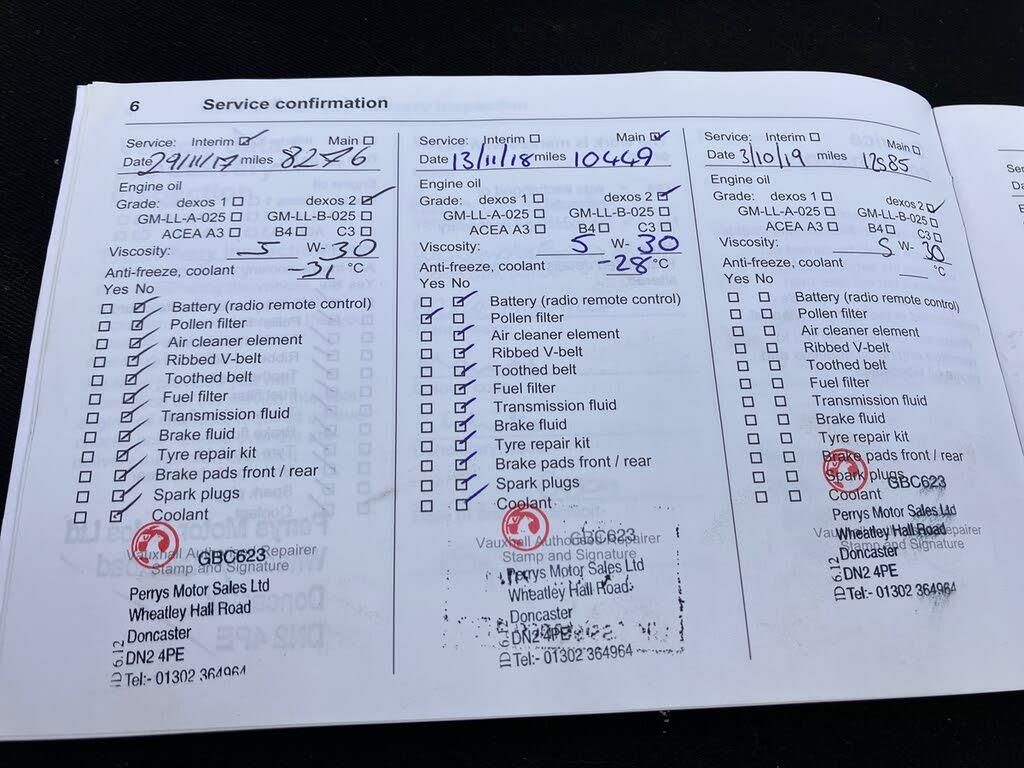 6 Service confirmation
Service: Interim ☑ Main ☐
Date 29/11/17 miles 8276
Engine oil
Grade: dexos 1 ☐ dexos 2 ☑
GM-LL-A-025 ☐ GM-LL-B-025 ☐
ACEA A3 ☐ B4 ☐ C3 ☐
Viscosity: 5 W- 30
Anti-freeze, coolant -31 °C
Yes No
☐ ☑ Battery (radio remote control)
☐ ☑ Pollen filter
☐ ☑ Air cleaner element
☐ ☑ Ribbed V-belt
☐ ☑ Toothed belt
☐ ☑ Fuel filter
☐ ☑ Transmission fluid
☐ ☑ Brake fluid
☐ ☑ Tyre repair kit
☐ ☑ Brake pads front / rear
☐ ☑ Spark plugs
☐ ☑ Coolant
GBC623
Vauxhall Authorised Repairer
Stamp and Signature
Perrys Motor Sales Ltd
Wheatley Hall Road
Doncaster
DN2 4PE
Tel:- 01302 364964
ID 6.12
Service: Interim ☐ Main ☑
Date 13/11/18 miles 10449
Engine oil
Grade: dexos 1 ☐ dexos 2 ☑
GM-LL-A-025 ☐ GM-LL-B-025 ☐
ACEA A3 ☐ B4 ☐ C3 ☐
Viscosity: 5 W- 30
Anti-freeze, coolant -28 °C
Yes No
☐ ☑ Battery (radio remote control)
☑ ☐ Pollen filter
☐ ☑ Air cleaner element
☐ ☑ Ribbed V-belt
☐ ☑ Toothed belt
☐ ☑ Fuel filter
☐ ☑ Transmission fluid
☐ ☑ Brake fluid
☐ ☑ Tyre repair kit
☐ ☑ Brake pads front / rear
☐ ☑ Spark plugs
☐ ☑ Coolant
GBC623
Vauxhall Authorised Repairer
Stamp and Signature
Perrys Motor Sales Ltd
Wheatley Hall Road
Doncaster
DN2 4PE
Tel:- 01302 364964
Service: Interim ☐ Main ☐
Date 3/10/19 miles 12885
Engine oil
Grade: dexos 1 ☐ dexos 2 ☑
GM-LL-A-025 ☐ GM-LL-B-025 ☐
ACEA A3 ☐ B4 ☐ C3 ☐
Viscosity: 5 W- 30
Anti-freeze, coolant °C
Yes No
☐ ☐ Battery (radio remote control)
☐ ☐ Pollen filter
☐ ☐ Air cleaner element
☐ ☐ Ribbed V-belt
☐ ☐ Toothed belt
☐ ☐ Fuel filter
☐ ☐ Transmission fluid
☐ ☐ Brake fluid
☐ ☐ Tyre repair kit
☐ ☐ Brake pads front / rear
☐ ☐ Spark plugs
☐ ☐ Coolant
GBC623
Perrys Motor Sales Ltd
Vauxhall Authorised Repairer
Wheatley Hall Road
Stamp and Signature
Doncaster
DN2 4PE
Tel:- 01302 364964
ID 6.12